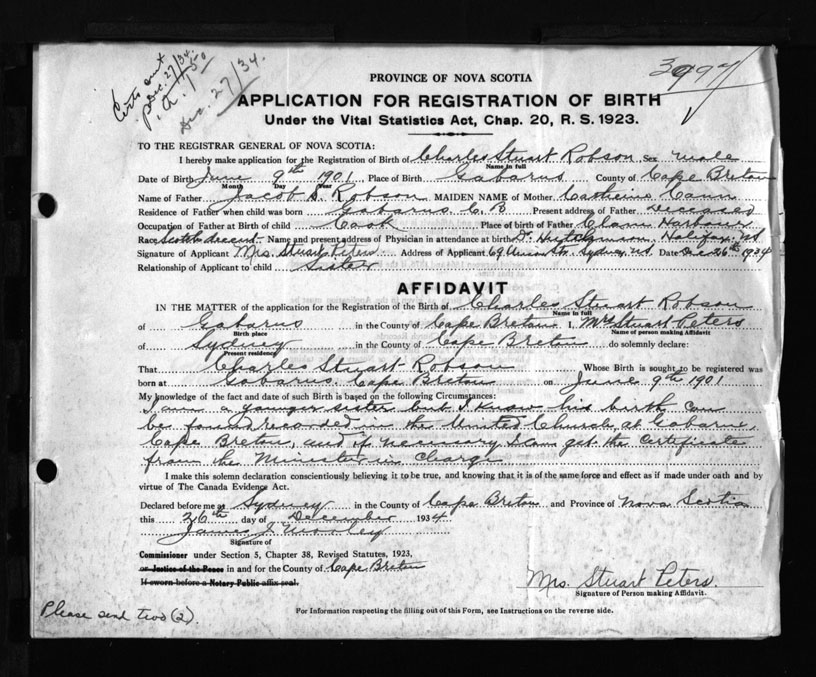 Certs sent
Dec. 27/34.
Dec. 27/34.
3997
PROVINCE OF NOVA SCOTIA
APPLICATION FOR REGISTRATION OF BIRTH
Under the Vital Statistics Act, Chap. 20, R. S. 1923.
TO THE REGISTRAR GENERAL OF NOVA SCOTIA:
I hereby make application for the Registration of Birth of Charles Stuart Robson Sex male
Name in full
Date of Birth June 9th 1901 Place of Birth Gabarus County of Cape Breton
Month Day Year
Name of Father Jacob S. Robson MAIDEN NAME of Mother Catherine Cann
Residence of Father when child was born Gabarus C. B Present address of Father deceased
Occupation of Father at Birth of child Cook Place of birth of Father Clam Harbour
Race Scotch descent Name and present address of Physician in attendance at birth Dr. Hutchinson, Halifax, NS
Signature of Applicant Mrs. Stuart Peters Address of Applicant 69 Union St. Sydney, N.S. Date Dec 26th 1934
Relationship of Applicant to child Sister
AFFIDAVIT
IN THE MATTER of the application for the Registration of the Birth of Charles Stuart Robson
Name in full
of Gabarus in the County of Cape Breton I, Mrs Stuart Peters
Birth place Name of person making Affidavit
of Sydney in the County of Cape Breton do solemnly declare:
Present residence
That Charles Stuart Robson Whose Birth is sought to be registered was
born at Gabarus. Cape Breton on June 9th 1901
My knowledge of the fact and date of such Birth is based on the following Circumstances:
I am a younger sister but I know his birth can
be found recorded in the United Church, at Gabarus,
Cape Breton, and if necessary I can get the Certificate
from the Minister in Charge
I make this solemn declaration conscientiously believing it to be true, and knowing that it is of the same force and effect as if made under oath and by
virtue of The Canada Evidence Act.
Declared before me at Sydney in the County of Cape Breton and Province of Nova Scotia
this 26th day of December 1934
James
Signature of
Commissioner under Section 5, Chapter 38, Revised Statutes, 1923,
or Justice of the Peace in and for the County of Cape Breton
If sworn before a Notary Public affix seal.
Mrs. Stuart Peters.
Signature of Person making Affidavit.
For Information respecting the filling out of this Form, see Instructions on the reverse side.
Please send two (2).